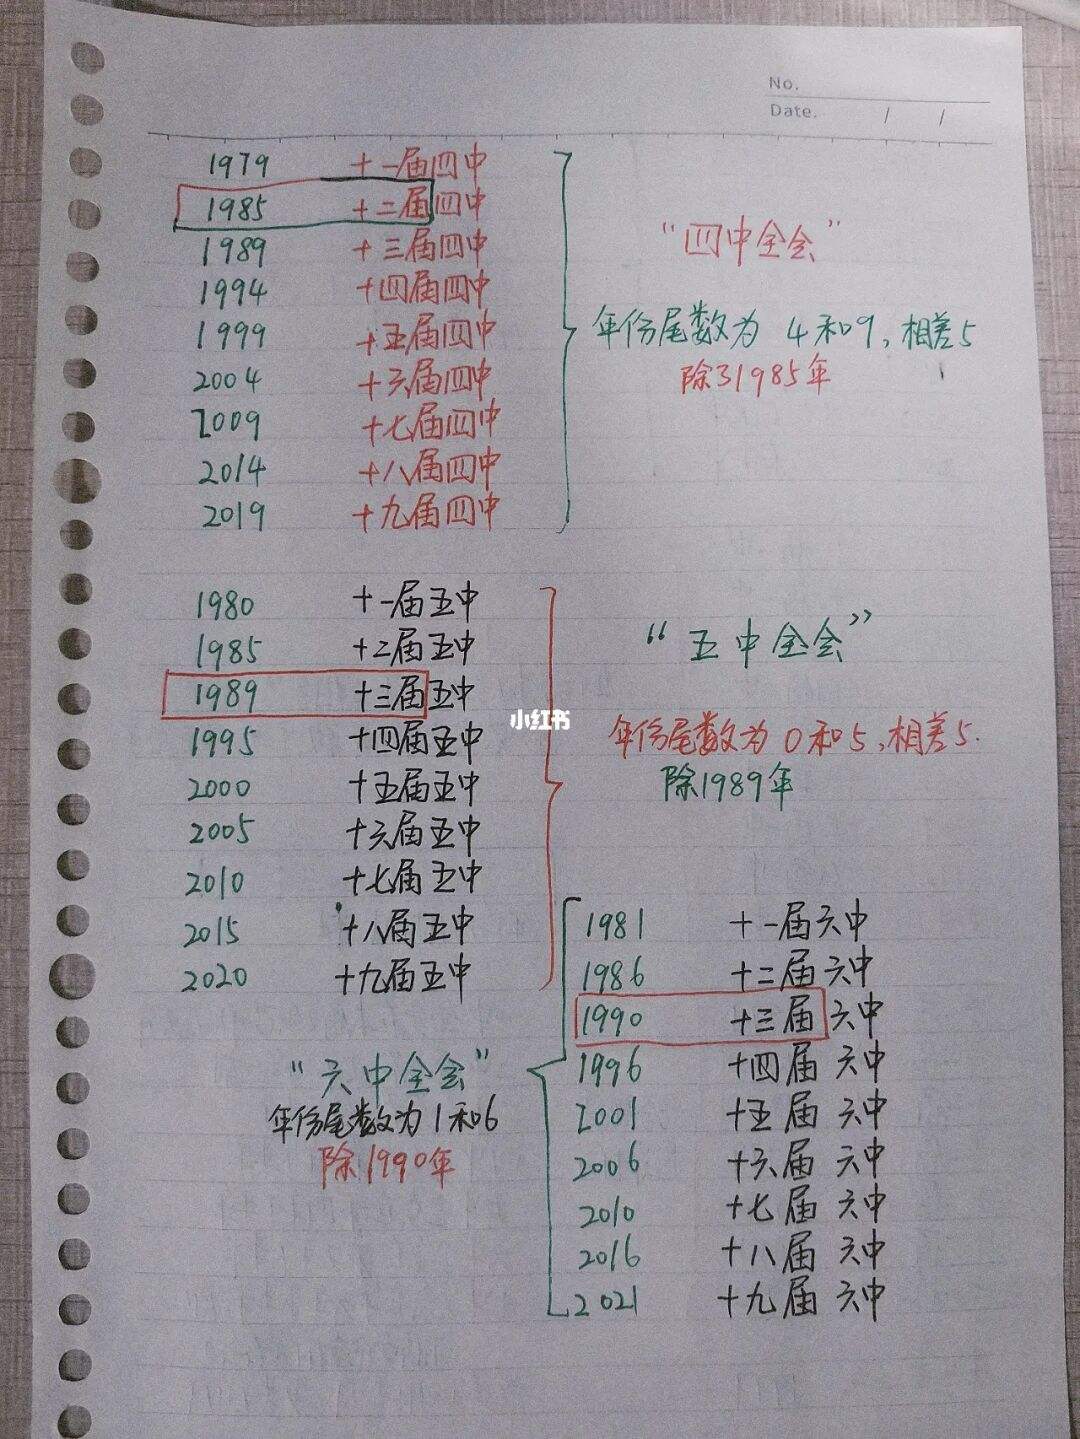 No.
Date. / /
1979 十一届四中
1985 十二届四中
1989 十三届四中
1994 十四届四中
1999 十五届四中
2004 十六届四中
2009 十七届四中
2014 十八届四中
2019 十九届四中
"四中全会"
年份尾数为 4和9,相差5
除了1985年
1980 十一届五中
1985 十二届五中
1989 十三届五中
1995 十四届五中
2000 十五届五中
2005 十六届五中
2010 十七届五中
2015 十八届五中
2020 十九届五中
"五中全会"
年份尾数为0和5,相差5.
除1989年
小红书
1981 十一届六中
1986 十二届六中
1990 十三届六中
1996 十四届六中
2001 十五届六中
2006 十六届六中
2010 十七届六中
2016 十八届六中
2021 十九届六中
"六中全会"
年份尾数为1和6
除1990年